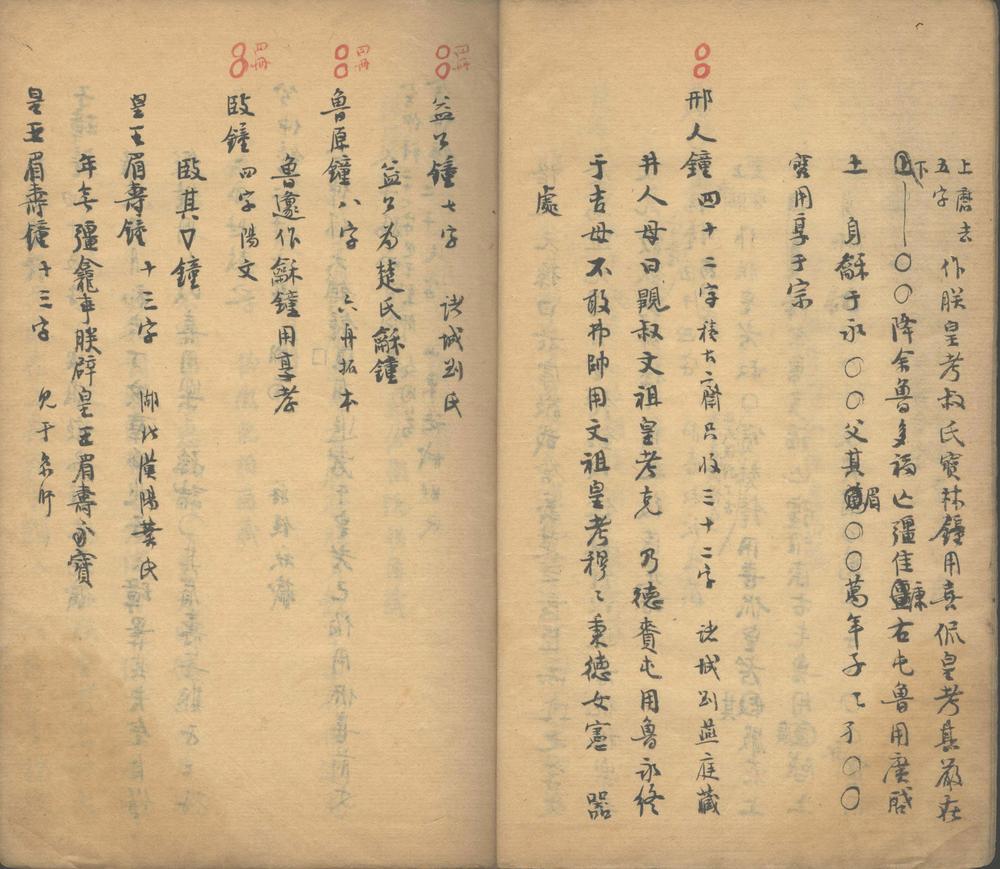 上磨去
五字
作朕皇考叔氏寶林鐘用喜侃皇考其嚴在
上下○○降余魯多福亡彊隹康右屯魯用廣啓
土 身龢于永○○父其眉○○萬年子〻孫○○
寶用享于宗
邢人鐘 四十二字 積古齋只收三十二字 諸城劉燕庭藏
井人母曰覭叔文祖皇考克 乃德賚屯用魯永終
于吉母不敢弗帥用文祖皇考穆〻秉德女憲 器
處
四冊
益公鐘 七字 諸城劉氏
益公為楚氏龢鐘
四冊
魯原鐘 八字 六舟拓本
魯邍作龢鐘用享孝
四冊
㱾鐘 四字陽文
㱾其▽鐘
皇王眉壽鐘 十三字 湖北漢陽葉氏
年無彊龕事朕辟皇王眉壽永寶
昰王眉壽鐘 十三字